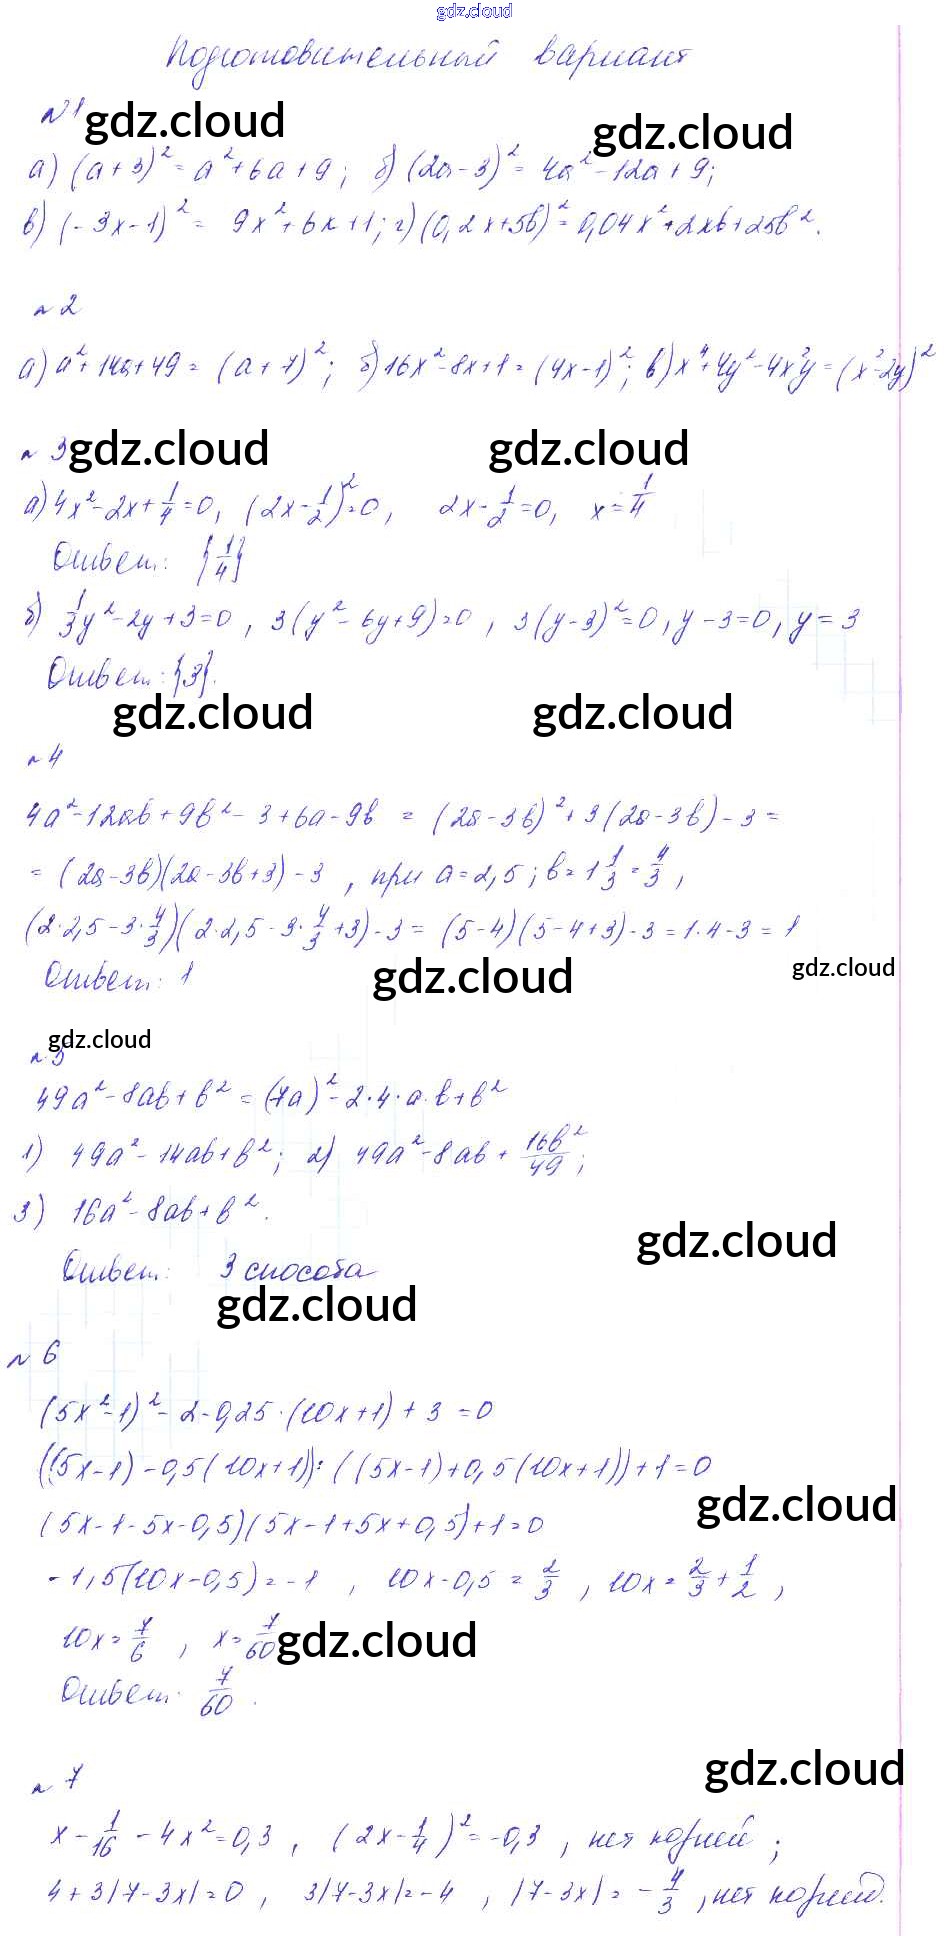 gdz.cloud
Подготовительный вариант
№1 gdz.cloud gdz.cloud
а) (a+3)² = a²+6a+9; б) (2a-3)² = 4a²-12a+9;
в) (-3x-1)² = 9x²+6x+1; г) (0,2x+5b)² = 0,04x²+2xb+25b².
№2
а) a²+14a+49 = (a+7)²; б) 16x²-8x+1 = (4x-1)²; в) x⁴+4y²-4x²y = (x²-2y)²
№3 gdz.cloud gdz.cloud
а) 4x²-2x+1/4=0, (2x-1/2)²=0, 2x-1/2=0, x=1/4
Ответ: {1/4}
б) 1/3y²-2y+3=0, 3(y²-6y+9)=0, 3(y-3)²=0, y-3=0, y=3
Ответ: {3}.
gdz.cloud gdz.cloud
№4
4a²-12ab+9b²-3+6a-9b = (2a-3b)²+3(2a-3b)-3=
= (2a-3b)(2a-3b+3)-3, при a=2,5; b=1 1/3=4/3,
(2·2,5-3·4/3)(2·2,5-3·4/3+3)-3= (5-4)(5-4+3)-3=1·4-3=1
Ответ: 1 gdz.cloud gdz.cloud
gdz.cloud
№5
49a²-8ab+b² = (7a)²-2·4·a·b+b²
1) 49a²-14ab+b²; 2) 49a²-8ab+16b²/49;
3) 16a²-8ab+b².
gdz.cloud
Ответ: 3 способа
gdz.cloud
№6
(5x²-1)²-2-0,25·(10x+1)+3=0
((5x-1)-0,5(10x+1))·((5x-1)+0,5(10x+1))+1=0
gdz.cloud
(5x-1-5x-0,5)(5x-1+5x+0,5)+1=0
-1,5(10x-0,5)=-1, 10x-0,5=2/3, 10x=2/3+1/2,
10x=7/6, x=7/60 gdz.cloud
Ответ: 7/60.
gdz.cloud
№7
x-1/16-4x²=0,3, (2x-1/4)²=-0,3, нет корней;
4+3|7-3x|=0, 3|7-3x|=-4, |7-3x|=-4/3, нет корней.